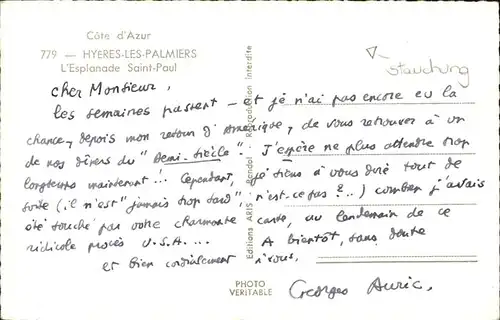 Côte d'Azur
779 — HYERES-LES-PALMIERS
L'Esplanade Saint-Paul
Stauchung
cher Monsieur,
les semaines passent – et je n'ai pas encore eu la
chance, depuis mon retour d'Amérique, de vous retrouver à un
de nos dîners du "Demi-siècle". J'espère ne plus attendre trop
longtemps maintenant!... Cependant, je tiens à vous dire tout de
suite (il n'est "jamais trop tard", n'est-ce pas?...) combien j'avais
été touché par votre charmante carte, au lendemain de ce
ridicule procès U.S.A.... A bientôt, sans doute
et bien cordialement à vous.
Georges Auric.
Editions ARIS Bandol Reproduction Interdite
PHOTO
VERITABLE